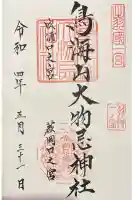 鳥海山大物忌神社
吹浦口之宮
蕨岡口之宮
令和四年五月三十一日